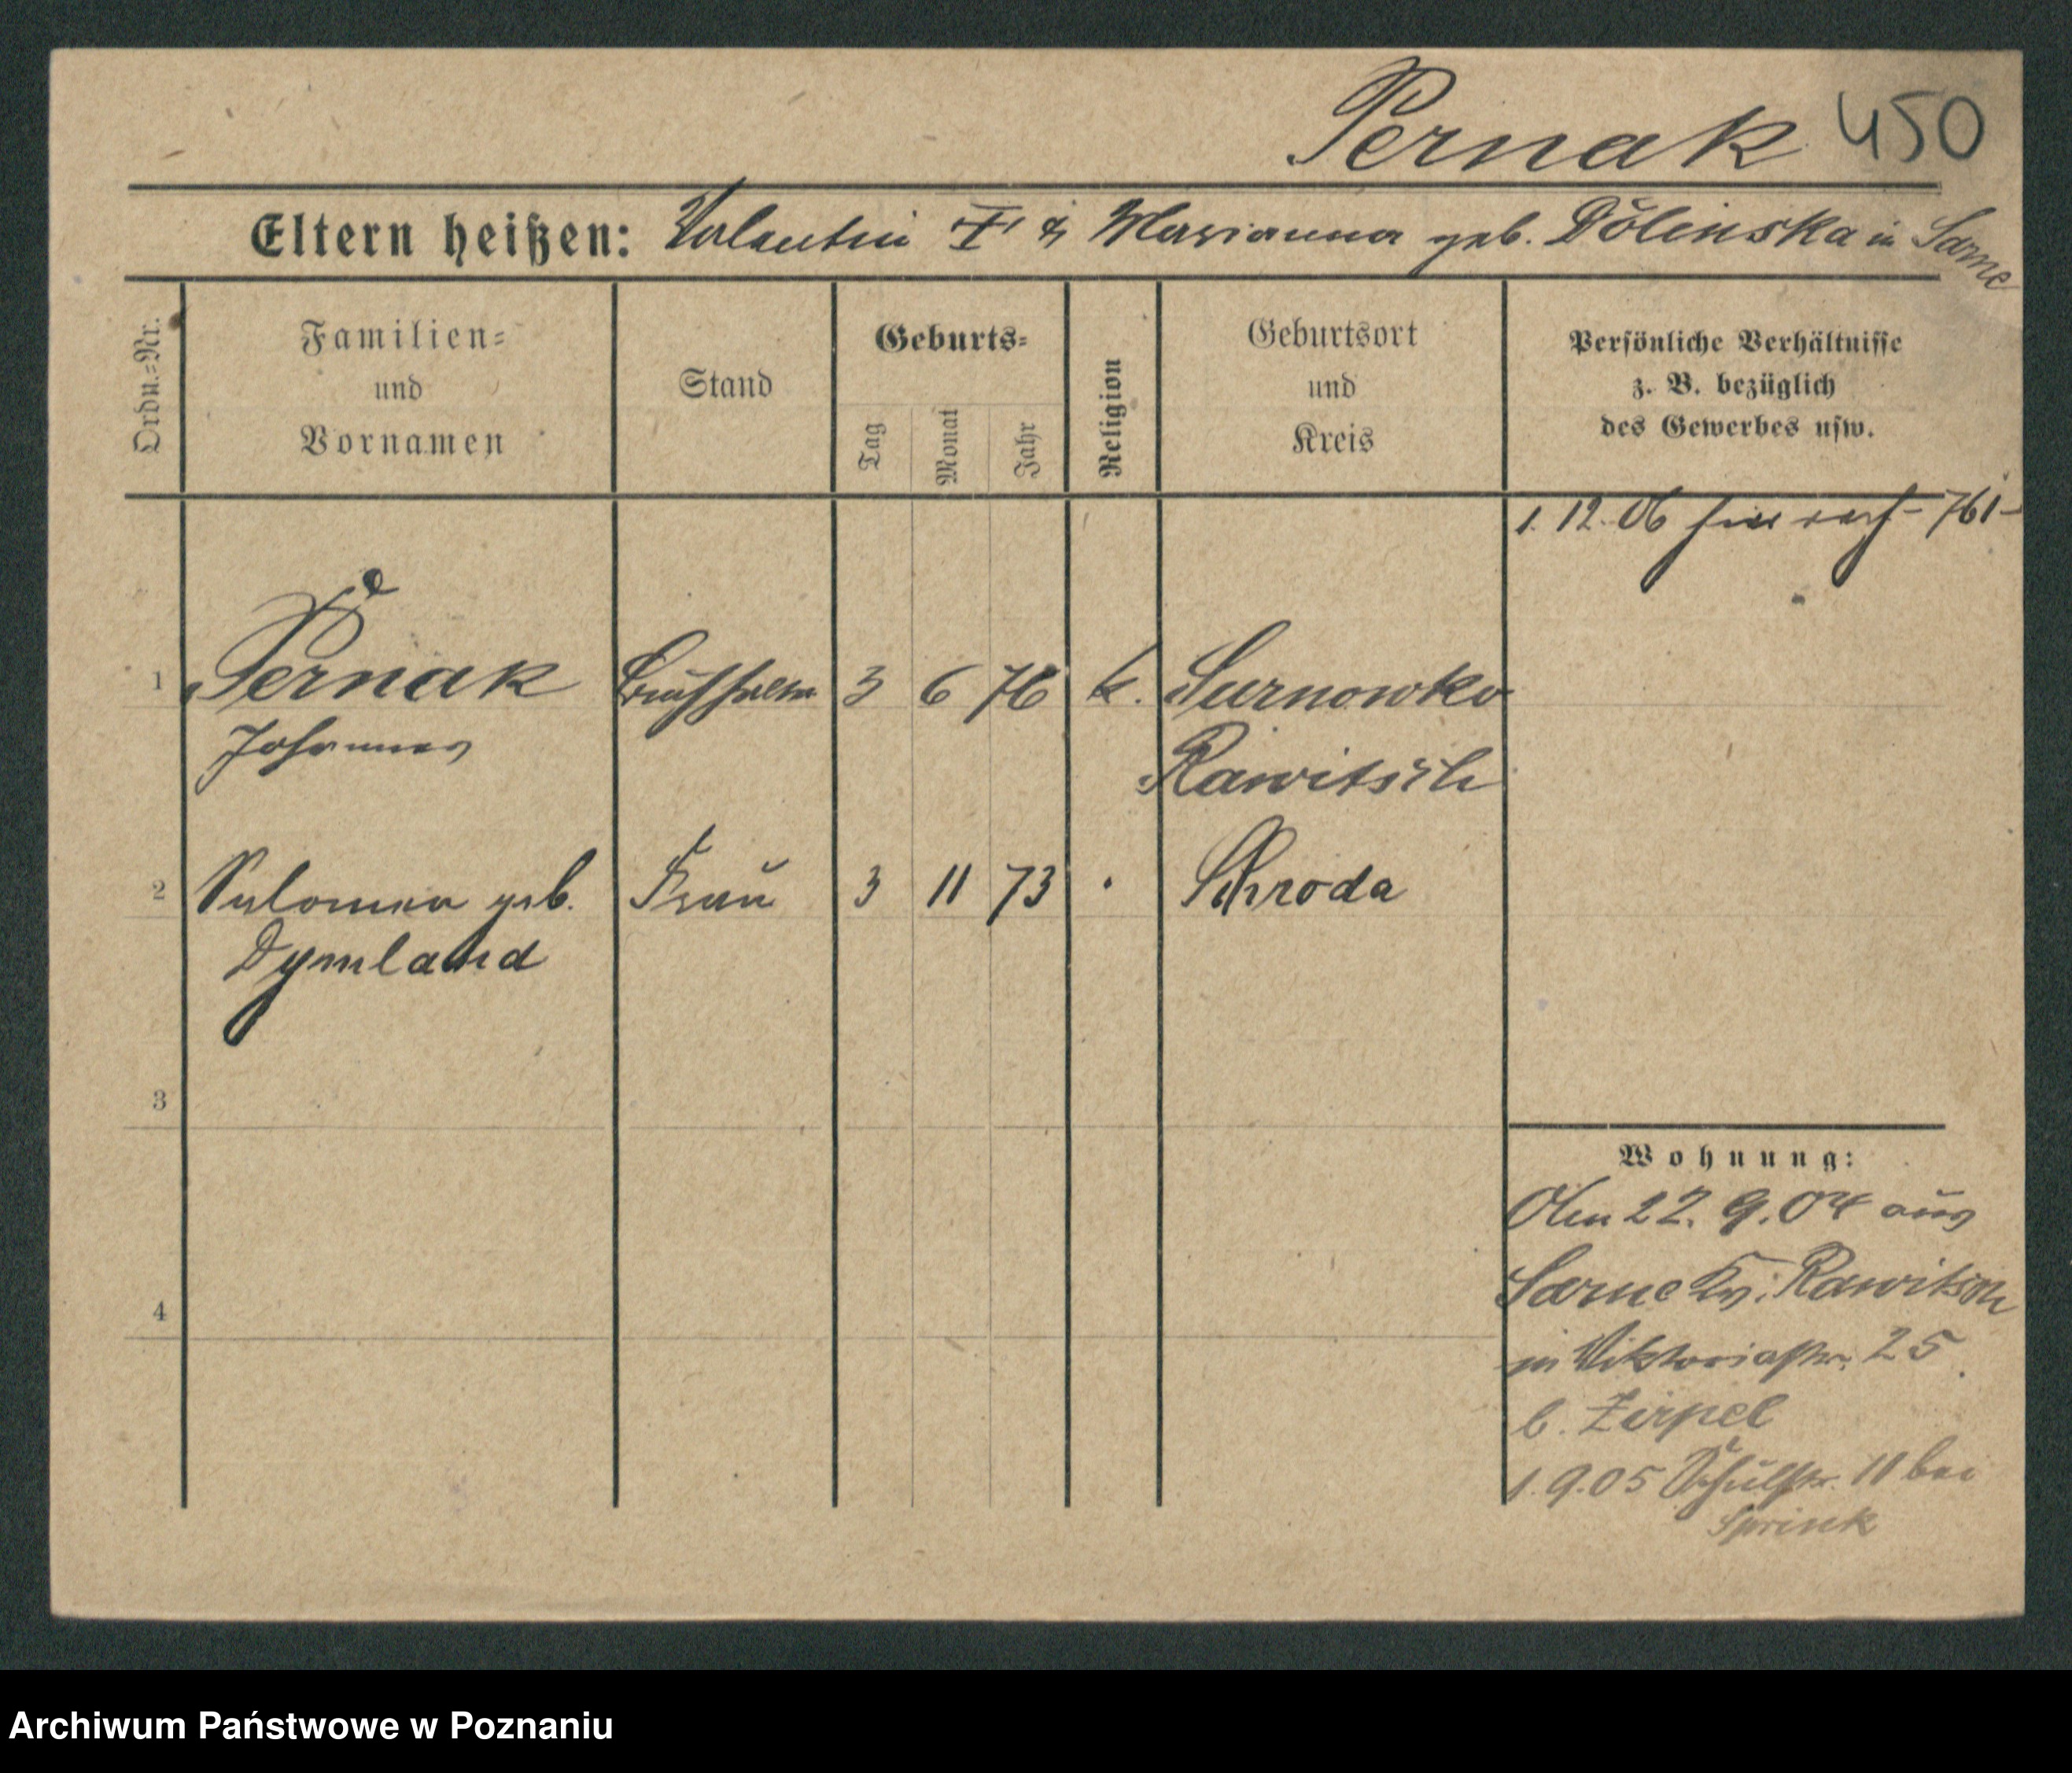 Pernak 450
Eltern heißen: Valentin † & Marianna geb. Dolinska in Sarne
Ordn.-Nr.
Familien- und Vornamen
Stand
Geburts-
Tag
Monat
Jahr
Religion
Geburtsort und Kreis
Persönliche Verhältnisse
z. B. bezüglich
des Gewerbes usw.
1. 12. 06 761
1 Pernak 3 6 76 k. Surnowko
Johannes Rawitsch
2 Salomea geb. Frau 3 11 73 Schroda
Dymland
3
4
Wohnung:
22. 9. 04 aus
Sarne Kr. Rawitsch
in Viktoriastr. 25
b. Zirpel
1. 9. 05 Schulstr. 11 bei
Sprink
Archiwum Państwowe w Poznaniu